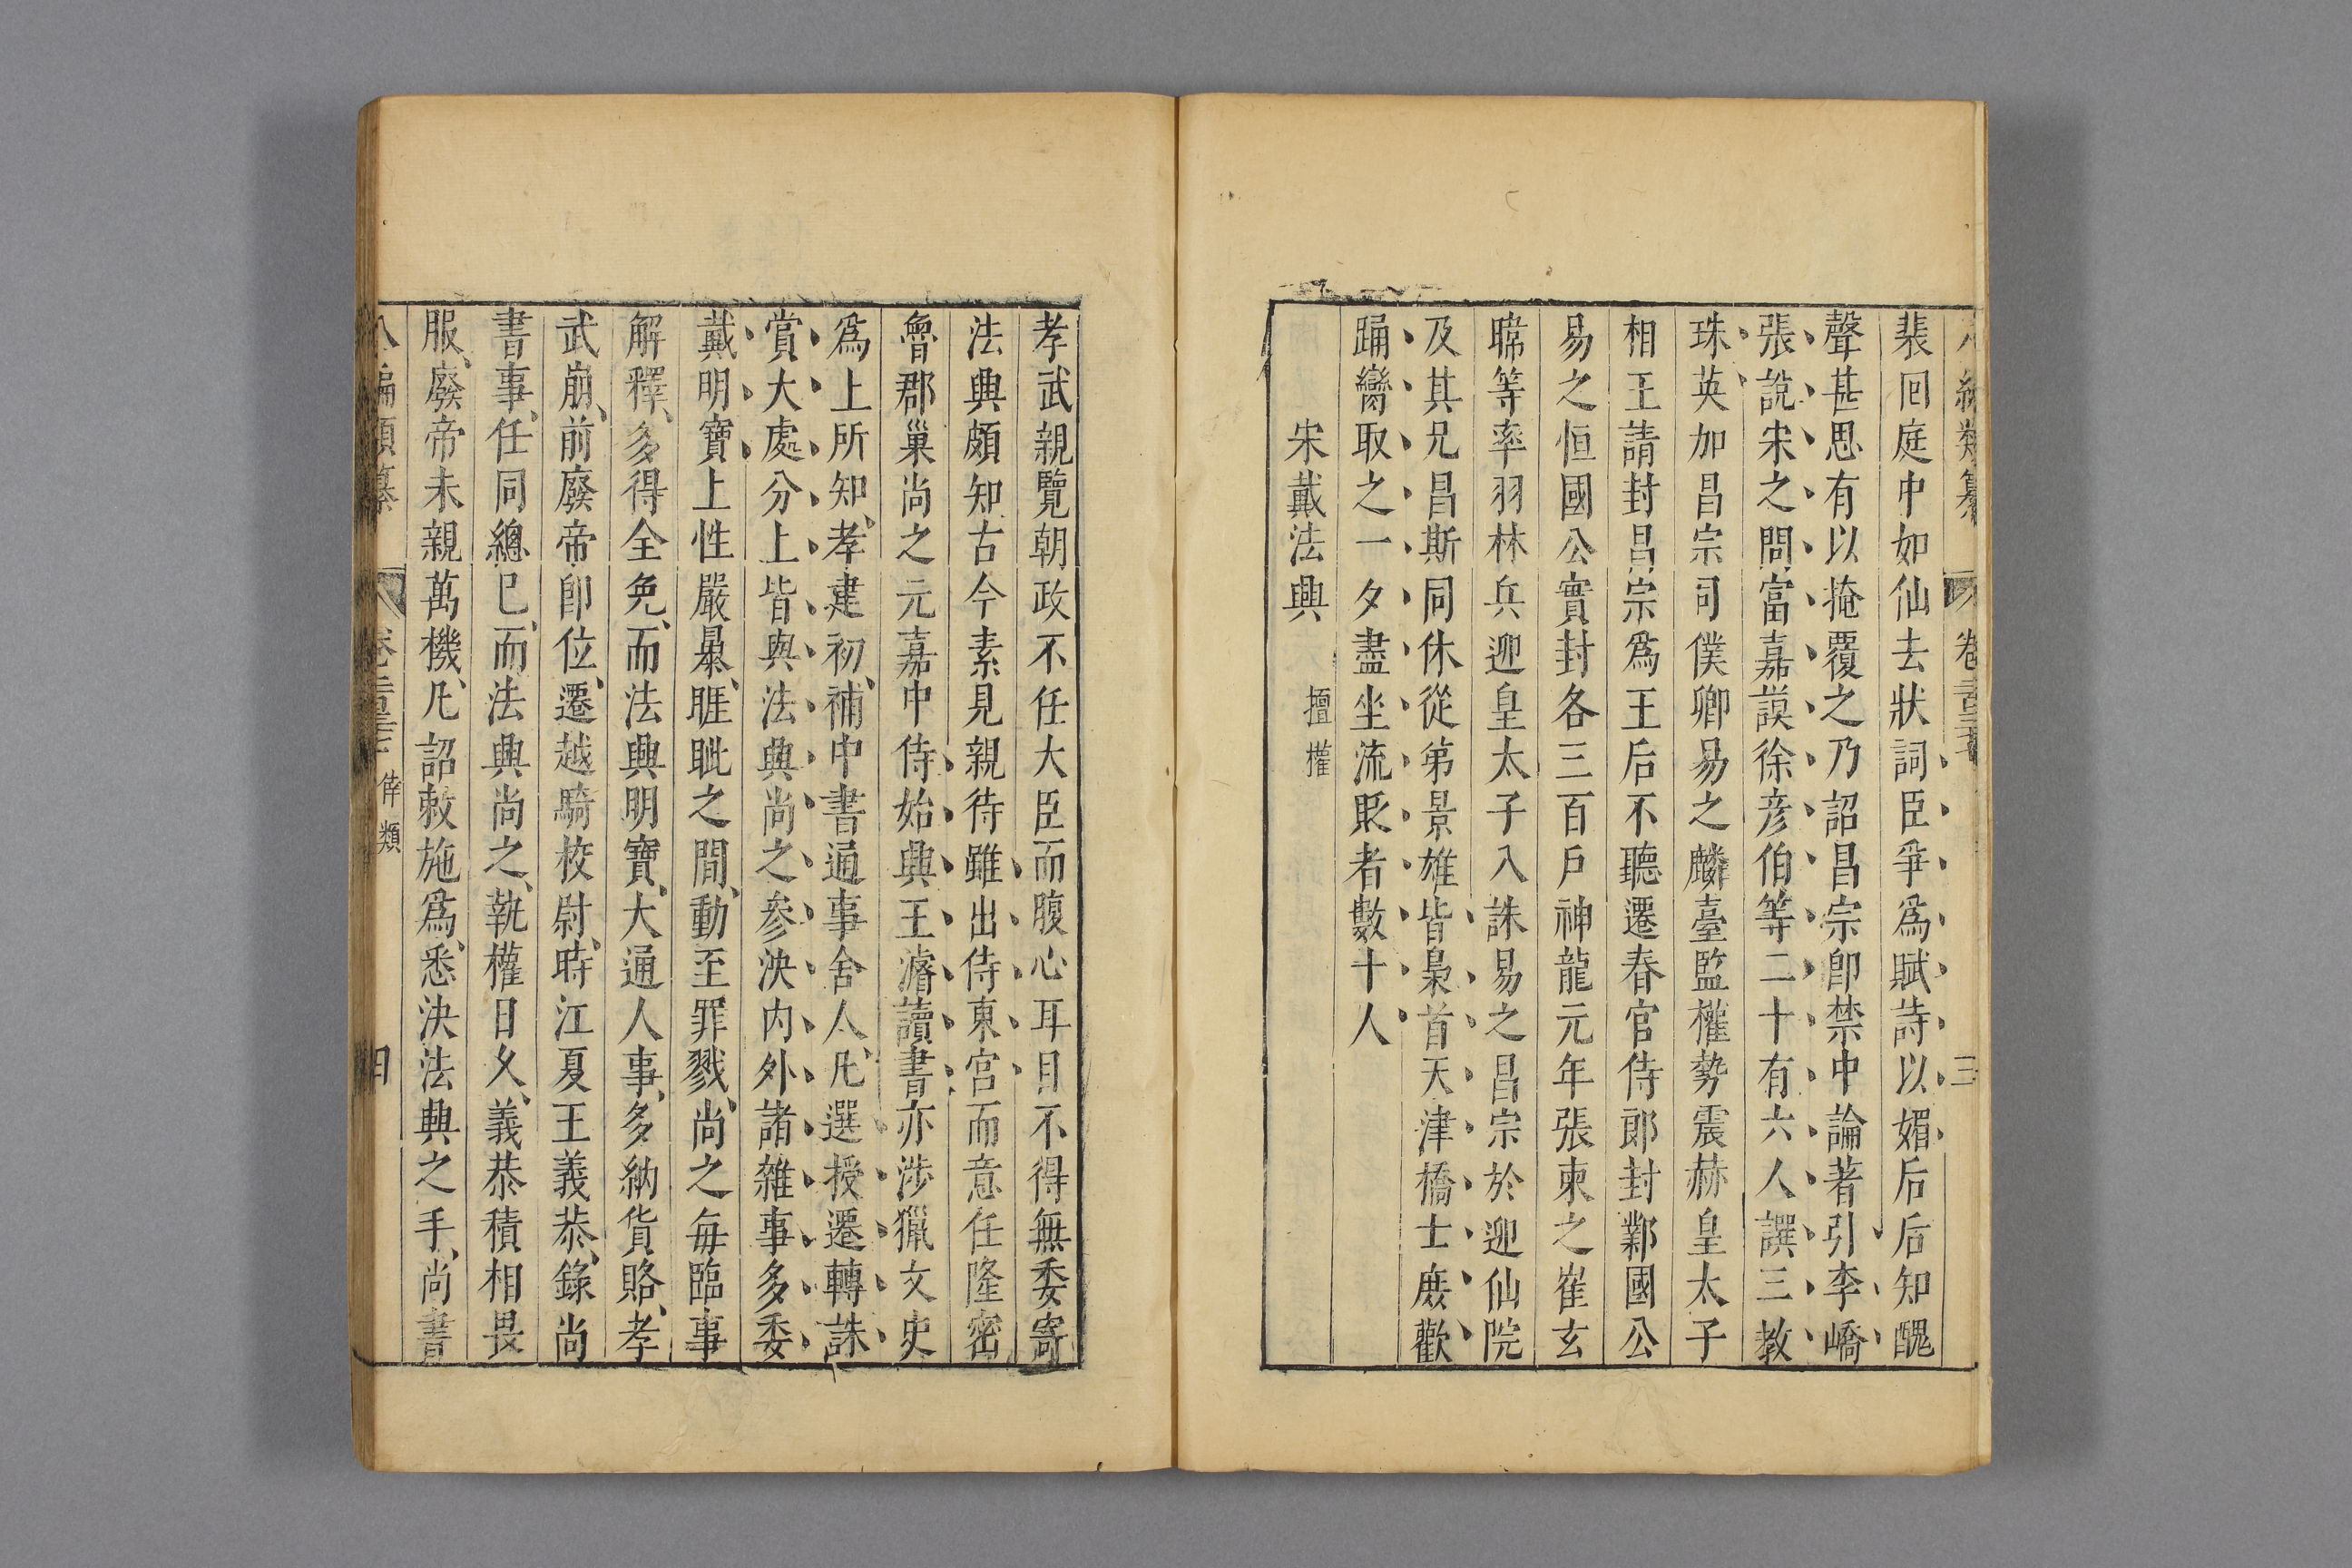 裴回庭中如仙去狀詞臣爭爲賦詩以媚后后知醜
聲甚思有以掩覆之乃詔昌宗卽禁中論著引李嶠
張說宋之問富嘉謨徐彦伯等二十有六人譔三教
珠英加昌宗司僕卿易之麟臺監權勢震赫皇太子
相王請封昌宗爲王后不聽遷春官侍郎封鄴國公
易之恒國公實封各三百戶神龍元年張柬之崔玄
暐等率羽林兵迎皇太子入誅易之昌宗於迎仙院
及其兄昌期同休從弟景雄皆梟首天津橋士庶歡
踊臠取之一夕盡坐流貶者數十人
宋戴法興 擅權
孝武親覽朝政不任大臣而腹心耳目不得無委寄
法興頗知古今素見親待雖出侍東宮而意任隆密
魯郡巢尚之元嘉中侍始興王濬讀書亦涉獵文史
爲上所知孝建初補中書通事舍人凡選授遷轉誅
賞大處分上皆與法興尚之參決内外諸雜事多委
戴明寶上性嚴暴睚眦之間動至罪戮尚之每臨事
解釋多得全免而法興明寶大通人事多納貨賂孝
武崩前廢帝卽位遷越騎校尉時江夏王義恭錄尚
書事任同總已而法興尚之執權日久義恭積相畏
服廢帝未親萬機凡詔敕施爲悉決法興之手尚書